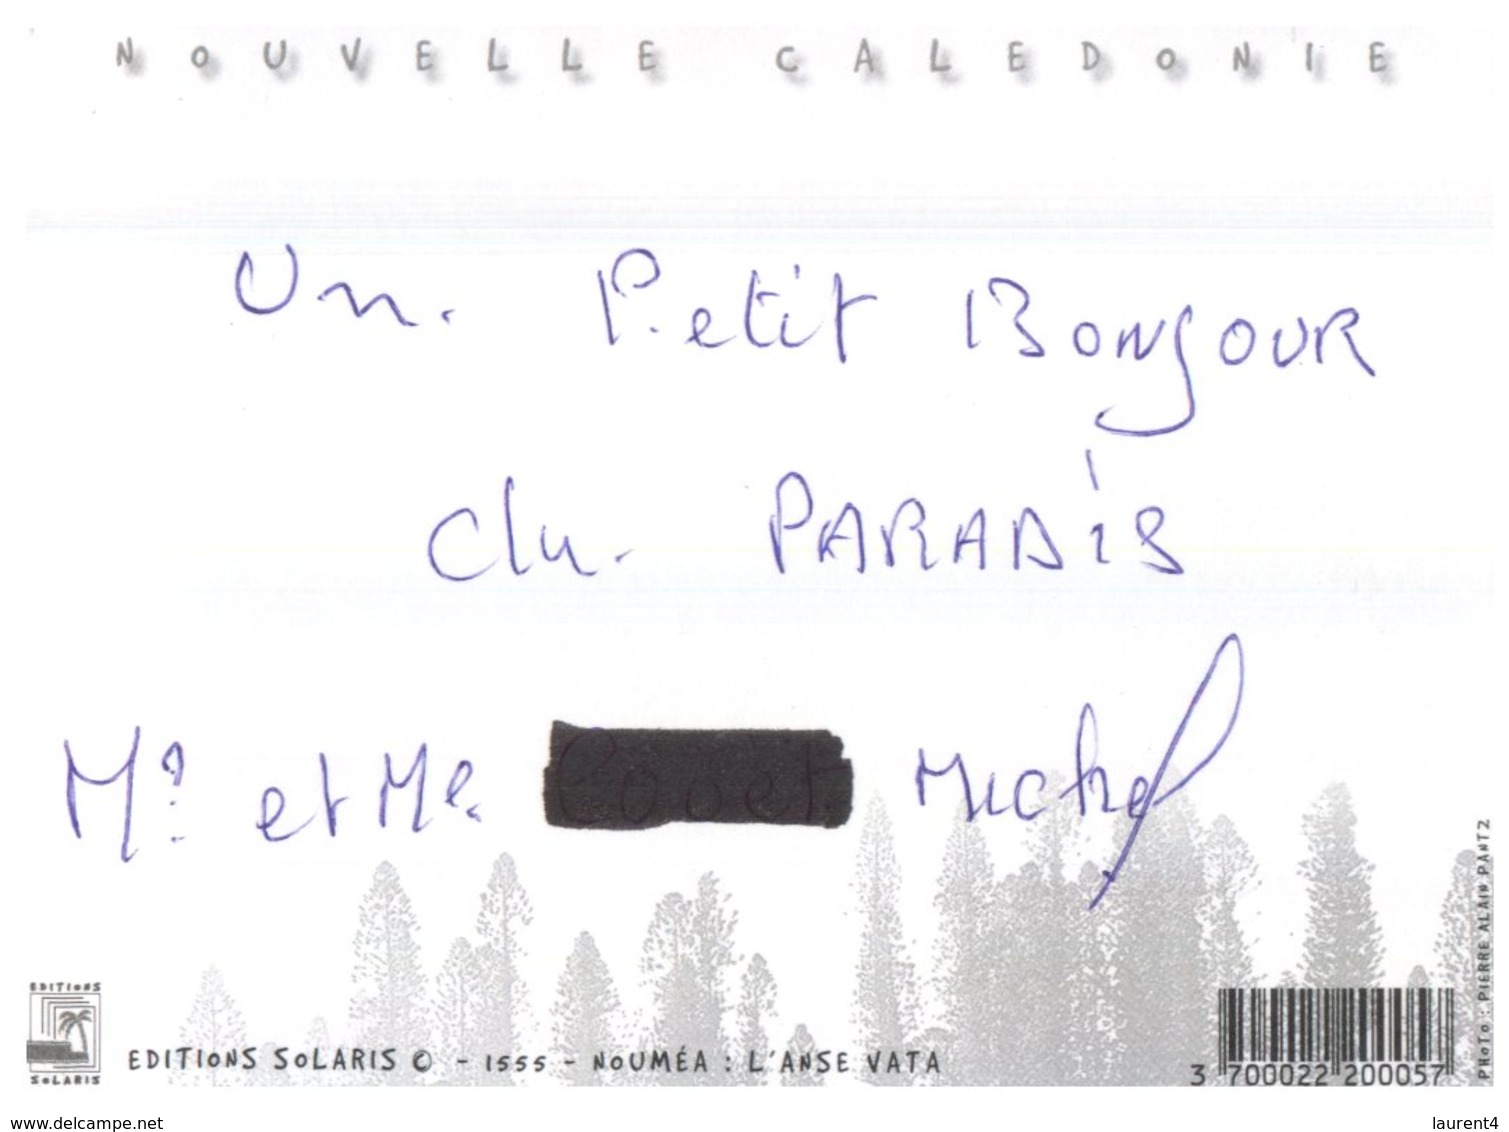 NOUVELLE CALEDONIE
Un. Petit BONJOUR
du. PARADIS
Mr et Me Michel
EDITIONS
SOLARIS
EDITIONS SOLARIS © - 1555 - NOUMÉA : L'ANSE VATA
3 700022 200057
PHOTO : PIERRE ALAIN PANTZ
www.delcampe.net
laurent4